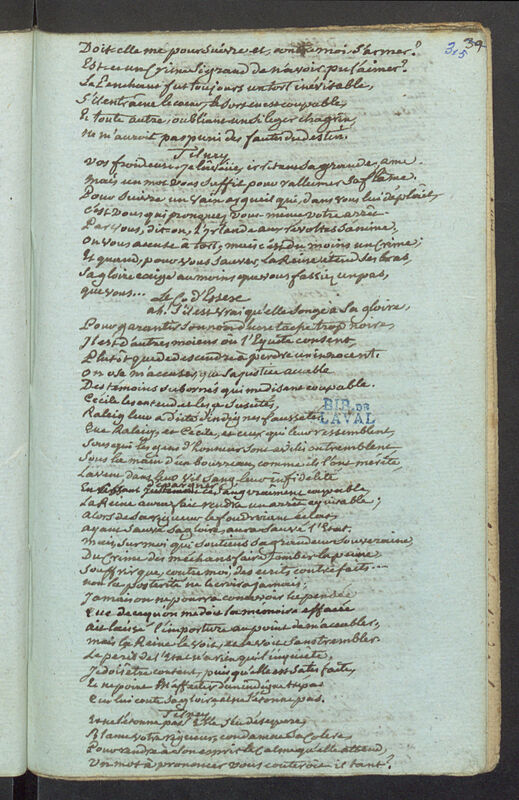 39
35
Doit elle me poursuivre et, contre moi s'armer?
Est ce un Crime si grand de n'avoir pu l'aimer?
Le Penchant fut toujours un tort inevitable,
S'il entraine le coeur, le sort en est coupable,
Et toute autre, oubliant un si leger chagrin,
Ne m'auroit pas puni des fautes du destin.
Tilney
Vos froideurs, je l'avoüe, irritent sa grande ame
mais un mot vous suffit pour rallumer sa flâme.
Pour suivre un vain orgueil qui, dans vous lui déplait,
c'est vous qui prononcez vous meme votre arrêt
Par vous, dit on, l'Irlande aux revoltes s'anime,
on vous accuse à tort, mais c'est du moins un Crime;
Et quand, pour vous sauver, la Reine etend les bras,
Sa gloire exige au moins que vous fassiez un pas,
que vous...
Le C. d'Essex
ah! s'il est vrai qu'elle songe à sa gloire,
Pour garantir son nom d'une tache trop noire,
Il est d'autres moiens où l'Equité consent,
Plutôt que de descendre à perdre un innocent.
on ose m'accuser, que sa justice accable
Des temoins subornés qui me disent coupable.
Cecile les entend et les a suscités,
Raleig leur a dicté d'indignes faussetés
Que Raleig, et Cecile, et ceux qui leur ressemblent,
Sous la main d'un bourreau, comme ils l'ont merité,
Lavent dans leur vil sang leur infidelité
La Reine aura fait rendre un arrêt equitable;
ayant sauvé sa gloire, aura sauvé l'Etat.
mais, sur moi qui soutiens sa grandeur souveraine,
Du Crime des mechans faire tomber la peine
Souffrir que, contre moi, des ecrits contrefaits....
non la posterité ne le croira jamais;
Jamais on ne pourra concevoir la pensée
Que de ce qu'on me doit la memoire effacée
ait laissé l'imposture au point de m'accabler,
mais la Reine le voit, et le voit sans trembler.
Le peril de l'Etat n'a rien qui l'inquiete,
Je dois être content, puis qu'elle est satisfaite,
Et ne point m'affecter d'un indigne trepas
Qui lui coute sa gloire et ne l'etonne pas.
Tilney
Et ne l'etonne pas! Elle s'en desespere,
Blame votre rigueur, condamne sa colere,
Pour rendre à son esprit le calme qu'elle attend,
Un mot à prononcer vous couteroit il tant?
BIB. DE
LAVAL